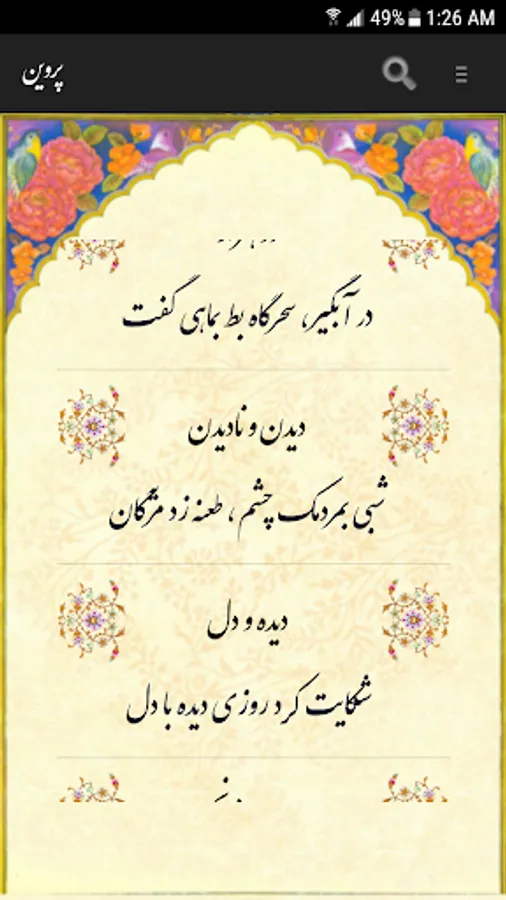 49% 1:26 AM
پروین
در آبگیر، سحرگاه بط بماهی گفت
دیدن و نادیدن
شبی بمردمک چشم، طعنه زد مژگان
دیده و دل
شکایت کرد روزی دیده با دل